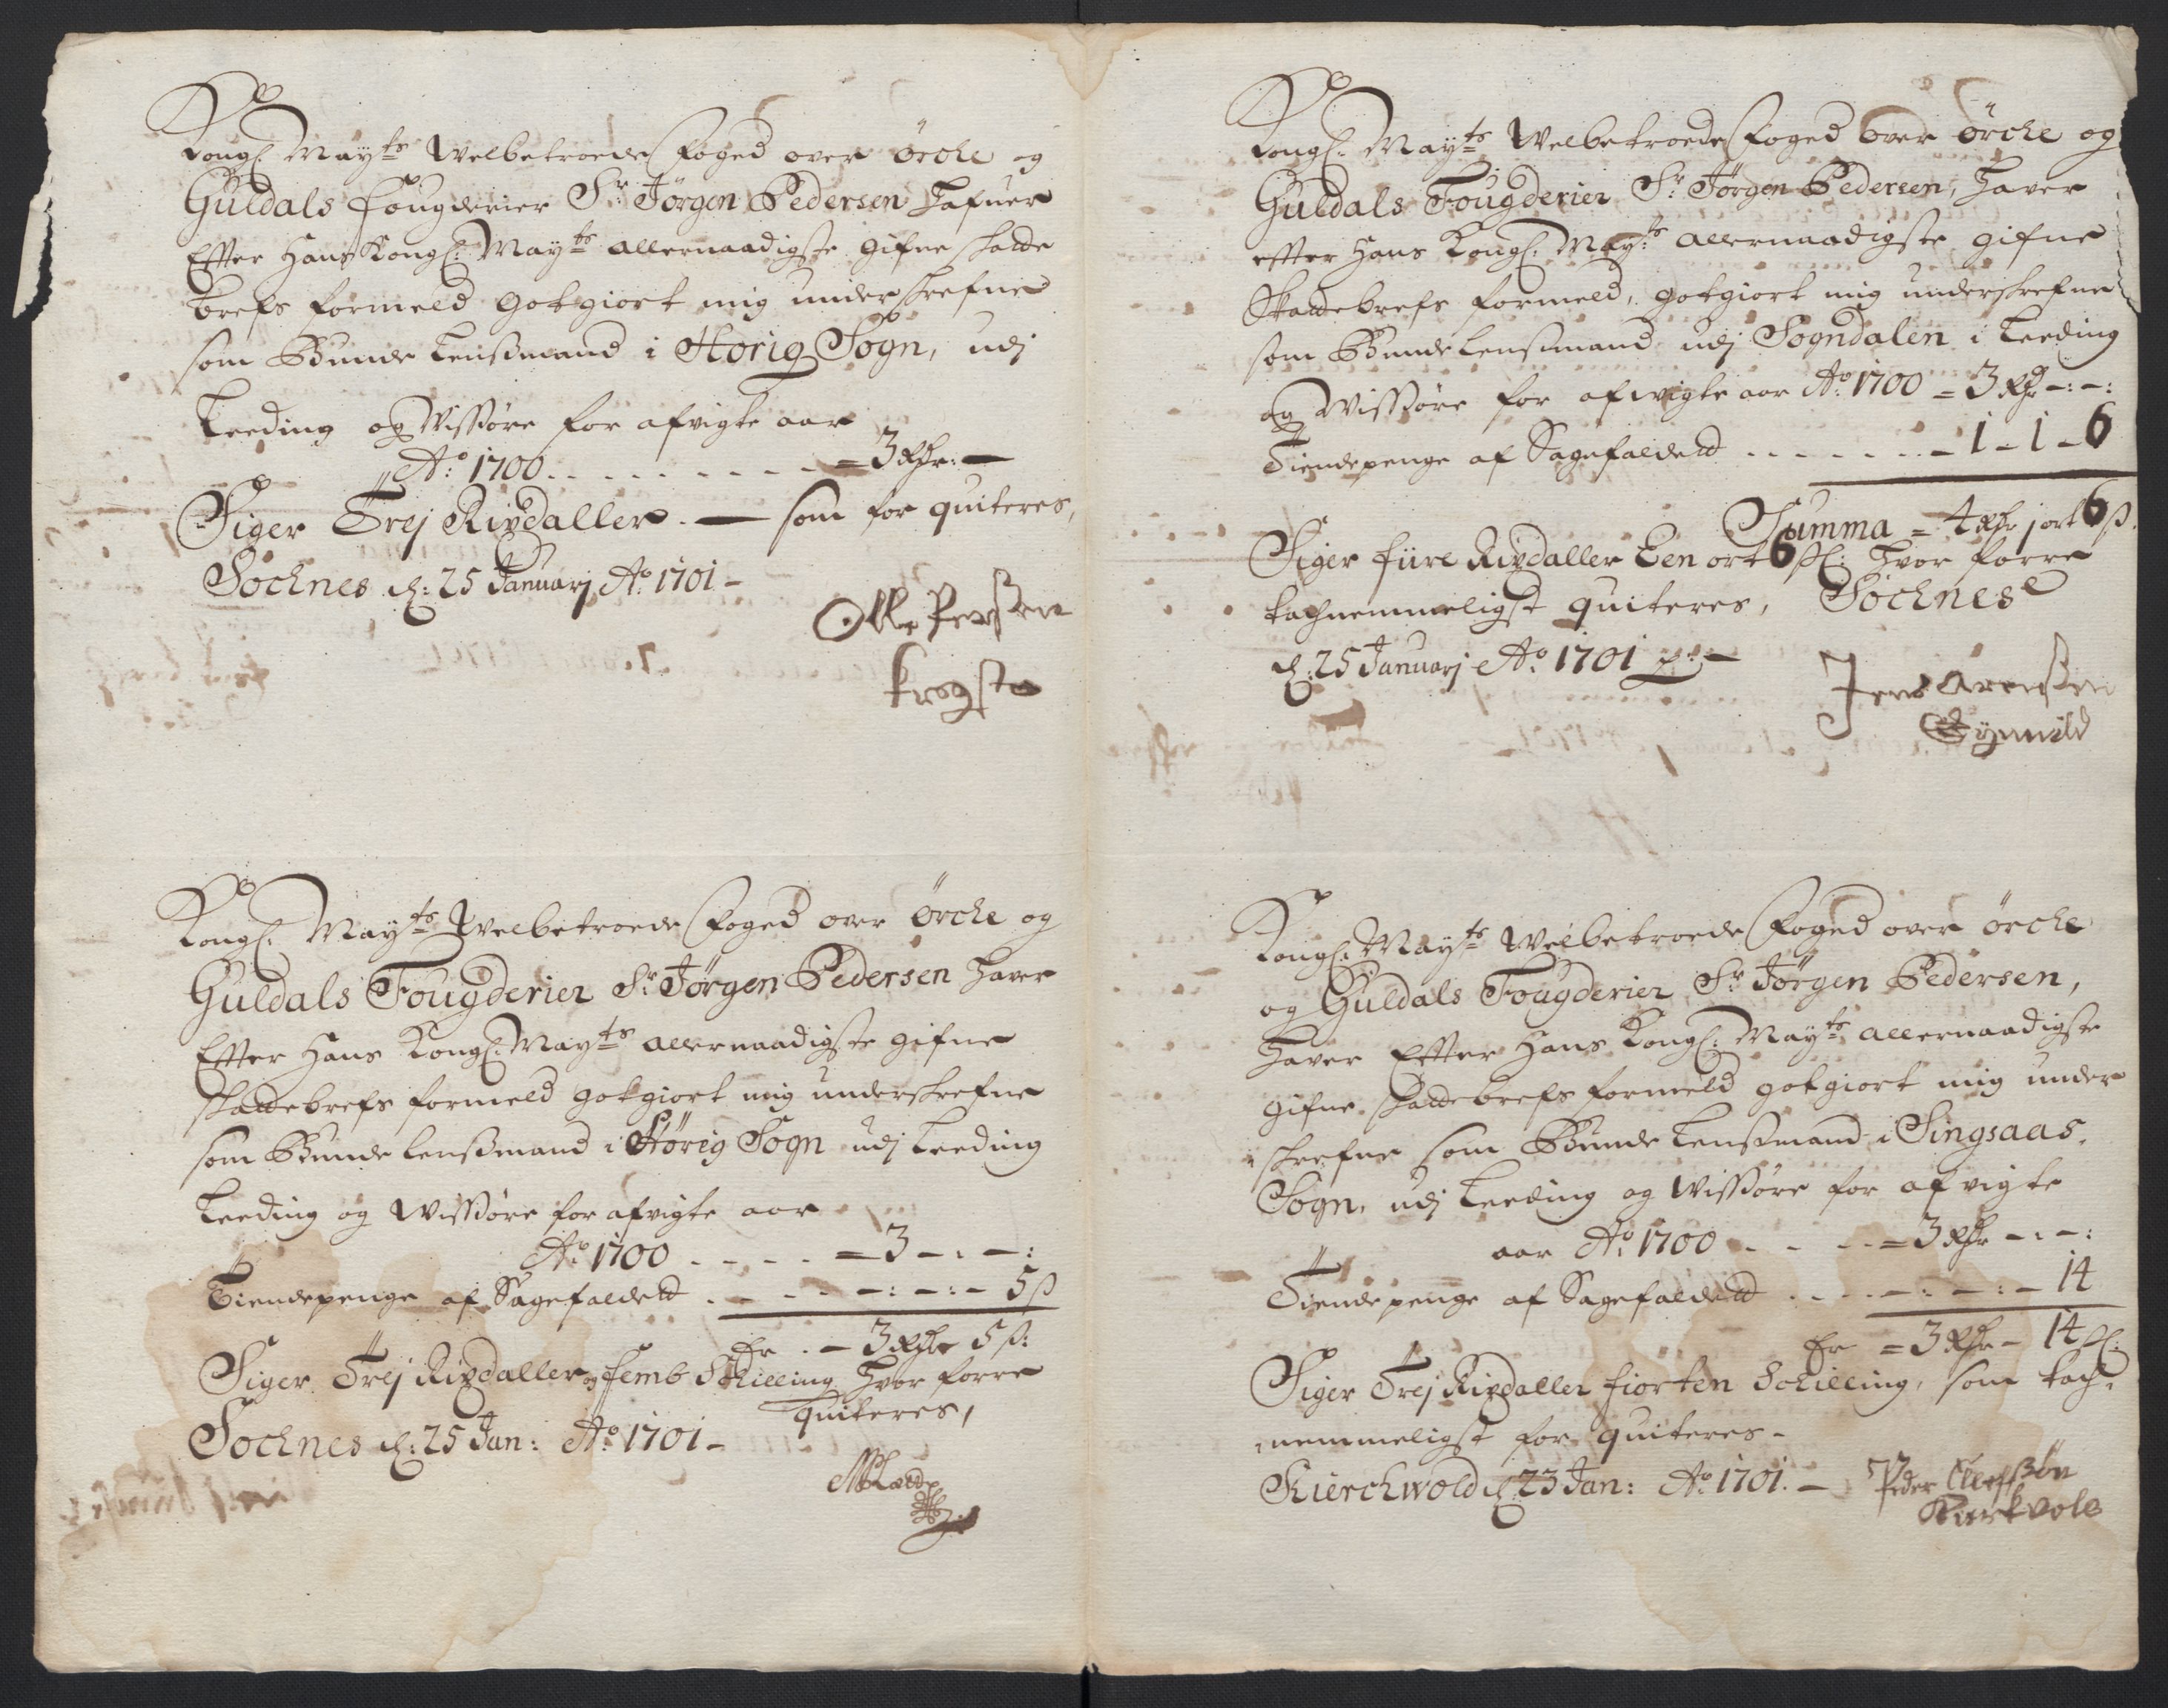 Kongl: Mayts Welbetroede Foged over Örche og
Guldals Fougderier Sr Jörgen Pedersen Hafuer
Efter Hans Kongl: Mayts allernaadigste gifne skatte
brefs formeld gotgiort mig underskrefne
som Bunde Lensmand i Horig Sogn, udj
Leeding og Wissöre for afvigte aar
Ao 1700 . . . . . . . . = 3 Rdr: —
Siger Trej Rixdaller. — som for quiteres,
Sochnes d: 25 Januarj Ao 1701 –
Olle Persen
Krogstæ
Kongl: Mayts Welbetroede Foged over Örche og
Guldals Fougderier Sr Jörgen Pedersen Haver
Efter Hans Kongl: Mayts allernaadigste gifne
skattebrefs formeld gotgiort mig underskrefne
som Bunde Lensmand i Hörig Sogn udj Leeding
Leeding og Wissöre for afvigte aar
Ao 1700 . . . . = 3 – : – :
Tiendepenge af Sagefaldett . . . . – : – : – 5 ß
Er . – 3 Rdr 5 ß:
Siger Trej Rixdaller og femb Schilling Hvor forre
quiteres,
Sochnes d: 25 Jan: Ao 1701 –
Kongl: Mayts Welbetroede Foged over Örche og
Guldals Fougderier Sr Jörgen Pedersen, Haver
efter Hans Kongl: Mayts allernaadigste gifne
Skattebrefs formeld, gotgiort mig underskrefne
som Bunde Lensmand udj Sogndalen i Leeding
og Wissöre for afvigte aar Ao 1700 = 3 Rdr – : – :
Tiendepenge af Sagefaldett . . . . . . . – 1 – 1 – 6
Summa = 4 Rdr 1 ort 6 ß.
Siger fiire Rixdaller Een ort 6 ßl: Hvor forre
tachnemmeligst quiteres, Sochnes
d: 25 Januarj Ao 1701 —
Jens Arensen
Öynnild
Kongl: Mayts Welbetroede Foged over Örche
og Guldals Fougderier Sr Jörgen Pedersen,
Haver Efter Hans Kongl: Mayts allernaadigste
gifne skattebrefs formeld gotgiort mig under
skrefne som Bunde Lensmand i Singsaas
Sogn, udj Leeding og Wissöre for afvigte
aar Ao 1700 . . . . = 3 Rdr – : – :
Tiendepenge af Sagefaldett . . . . – : – : – 14
Er = 3 Rdr – 14 ßl:
Siger Trej Rixdaller fiorten Schilling, som tach
nemmeligst for quiteres –
Kierchwold d: 23 Jan: Ao 1701. – Peder Olefsön
Kirkvold